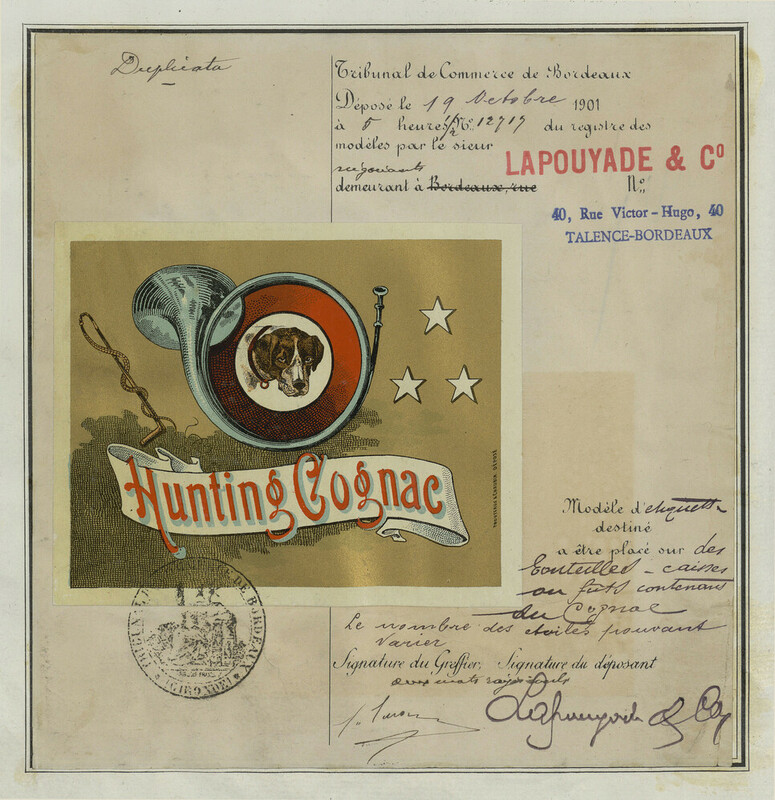 Duplicata
Tribunal de Commerce de Bordeaux
Déposé le 19 Octobre 1901
à 5 heures 1/2 No. 12717 du registre des
modèles par le sieur
LAPOUYADE & Co
négociants
demeurant à Bordeaux, rue No.
40, Rue Victor-Hugo, 40
TALENCE-BORDEAUX
Hunting Cognac
Modèle d'etiquette
destiné
a être placé sur des
bouteilles - caisses
ou futs contenant
du Cognac
Le nombre des etoiles pouvant
varier
Signature du Greffier, Signature du déposant
deux mots rayés nuls
Lapouyade & Co
TRIBUNAL DE COMMERCE DE BORDEAUX
(GIRONDE)